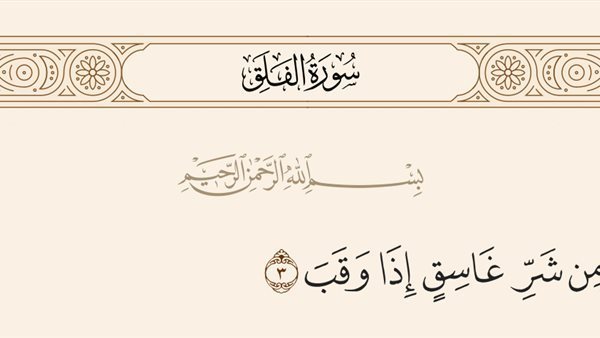 سُورَةُ الفَلَقِ
بِسْمِ اللَّهِ الرَّحْمَٰنِ الرَّحِيمِ
مِن شَرِّ غَاسِقٍ إِذَا وَقَبَ ٣